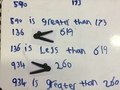 590 173
590 is greater than 173
136 < 619
136 is Less than 619
934 > 260
934 is greater than 260